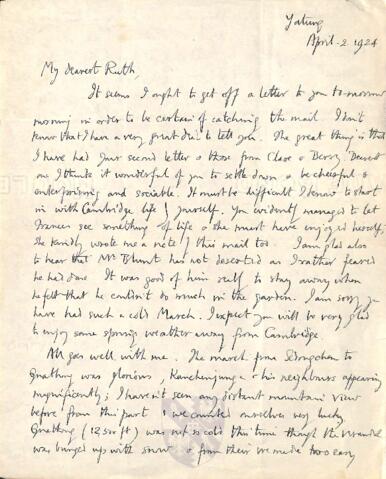 Yatung
April - 2 1924
My dearest Ruth,
It seems I ought to get off a letter to you to-morrow
morning in order to be certain of catching the mail. I don't
know that I have a very great deal to tell you. The great thing is that
I have had your second letter & those from Clare & Berry. Dearest
one I think it wonderful of you to settle down & be cheerful &
enterprising and sociable. It must be difficult I know to start
in with Cambridge life by yourself. You evidently managed to let
Frances see something of life & she must have enjoyed herself;
she kindly wrote me a note by this mail too. I am glad also
to hear that Mr Blunt has not deserted as I rather feared
he had done. It was good of him self to stay away when
he felt that he couldn't do much in the garden. I am sorry you
have had such a cold March. I expect you will be very glad
to enjoy some spring weather away from Cambridge.
All goes well with me. The march from Dongchen to
Gnathong was glorious, Kanchenjunga & his neighbours appearing
magnificently; I haven't seen any distant mountain view
before from this part & we counted ourselves very lucky
Gnathong (12,500 ft) was not so cold this time though the verandah
was banged up with snow & from there we made two easy